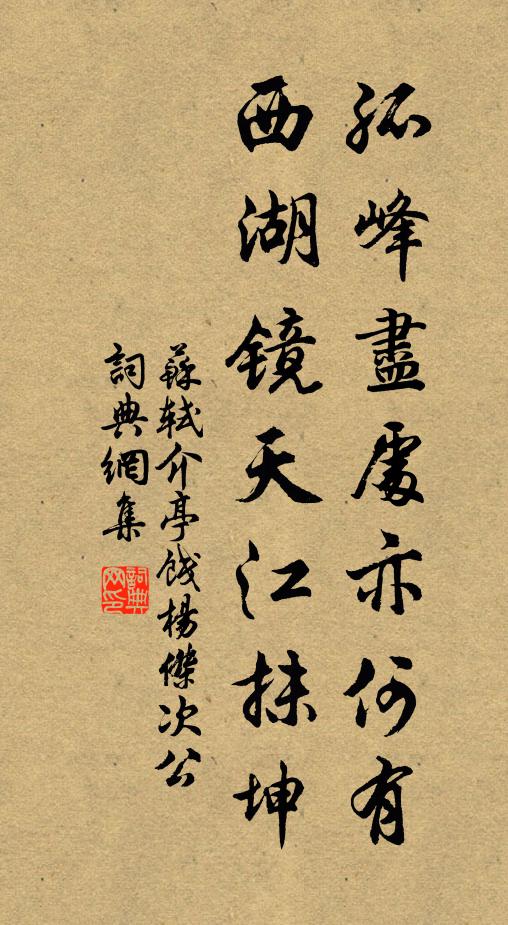 孤峰盡處亦何有
西湖镜天江抹坤
蘇轼介亭餞楊傑次公
詞典網集
詞典网印